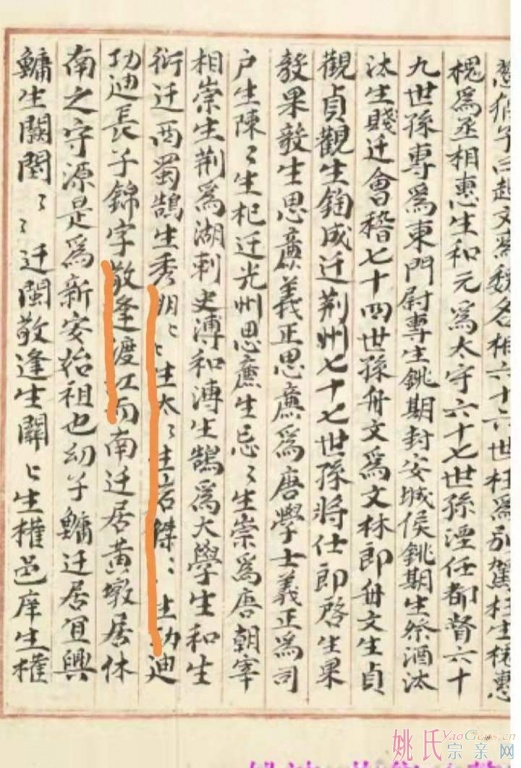 子曰起文爲魏名相六十六世枉爲別駕枉生槐惠
槐爲丞相惠生和元爲太守六十七世孫湮任都督六十
九世孫專爲東門尉專生銚期封安城侯銚期生祭酒汰
汰生賤迁會稽七十四世孫舟文爲文林郎舟文生貞
觀貞觀生成迁荆州七十七世孫將仕郎啓生果
毅果毅生思廌義正思廌爲唐學士義正爲司
户生陳〻生杞迁光州思廌生忌〻生崇爲唐朝宰
相崇生荆爲湖刺史溥和溥生鵠爲大學生和生
衍迁西蜀鵠生秀明〻生太〻生岩傑〻生功迪
功迪長子錦字敬逢渡江而南迁居黄墩居休
南之守源是爲新安始祖也幼子鱅迁居宜興
鱅生闕閣〻〻迁閩敬逢生闢〻生權邑庠生權
姚氏宗亲网